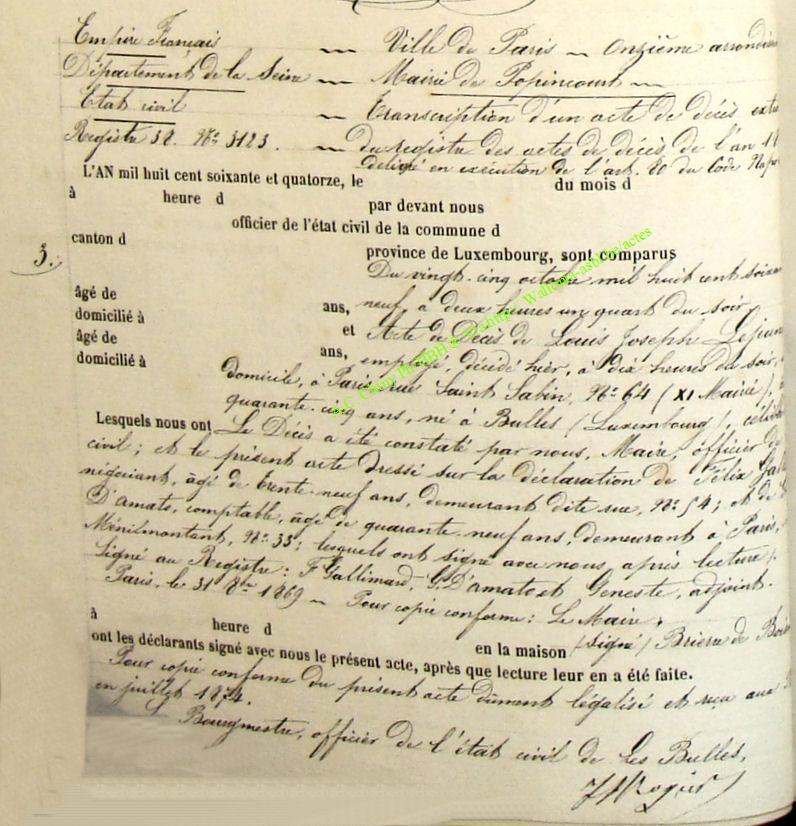 Empire Français — Ville de Paris — Onzième arrondis
Département de la Seine — Mairie de Popincourt —
Etat civil — Transcription d'un acte de décès extr
Registre 32. N° 3123. — du registre des actes de décès de l'an 18
délivré en exécution de l'art. 80 du Code Nap
L'AN mil huit cent soixante et quatorze, le du mois d
à heure d par devant nous
officier de l'état civil de la commune d
canton d province de Luxembourg, sont comparus
3. Du vingt-cinq octobre mil huit cent soixan
âgé de ans, neuf, à deux heures un quart du soir
domicilié à et Acte de Décès de Louis Joseph Lejeun
âgé de ans, employé, décédé hier, à dix heures du soir,
domicilié à domicile, à Paris, rue Saint Sabin, N° 64 (XI Mairie),
quarante-cinq ans, né à Bulles (Luxembourg), céliba
Lesquels nous ont Le Décès a été constaté par nous, Maire, officier de
civil; et le présent acte dressé sur la déclaration de Félix Gal
négociant, âgé de trente-neuf ans, demeurant dite rue, N° 54; et de
D'amato, comptable, âgé de quarante-neuf ans, demeurant à Paris,
Ménilmontant, N° 33; lesquels ont signé avec nous après lecture.
Signé au Registre: F Gallimard, G. D'amato et Geneste, adjoint.
Paris, le 31 8bre 1869 — Pour copie conforme: Le Maire,
à heure d en la maison (signé) Briere de Bois
ont les déclarants signé avec nous le présent acte, après que lecture leur en a été faite.
Pour copie conforme du présent acte dûment légalisé et reçu aux
en juillet 1874.
Bourgmestre, officier de l'état civil de Les Bulles,